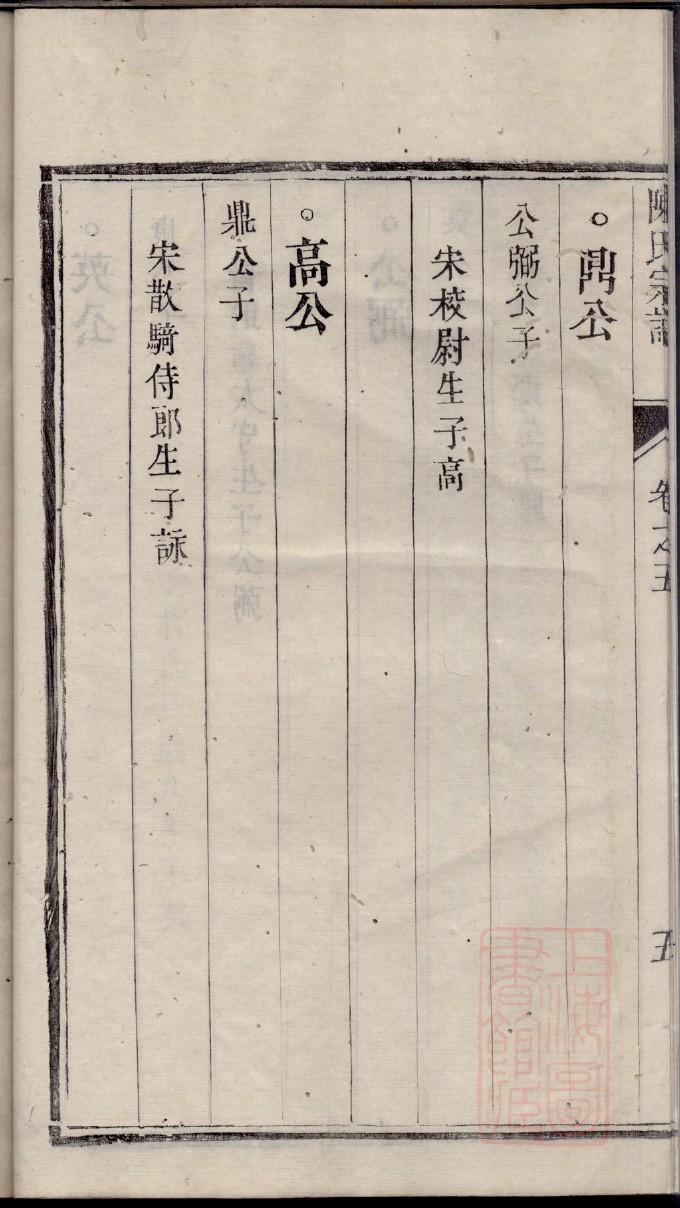 陳氏宗譜
卷之五
五
。鼎公
公弼公子
宋校尉生子高
。高公
鼎公子
宋散騎侍郎生子詠
上海圖
書館藏